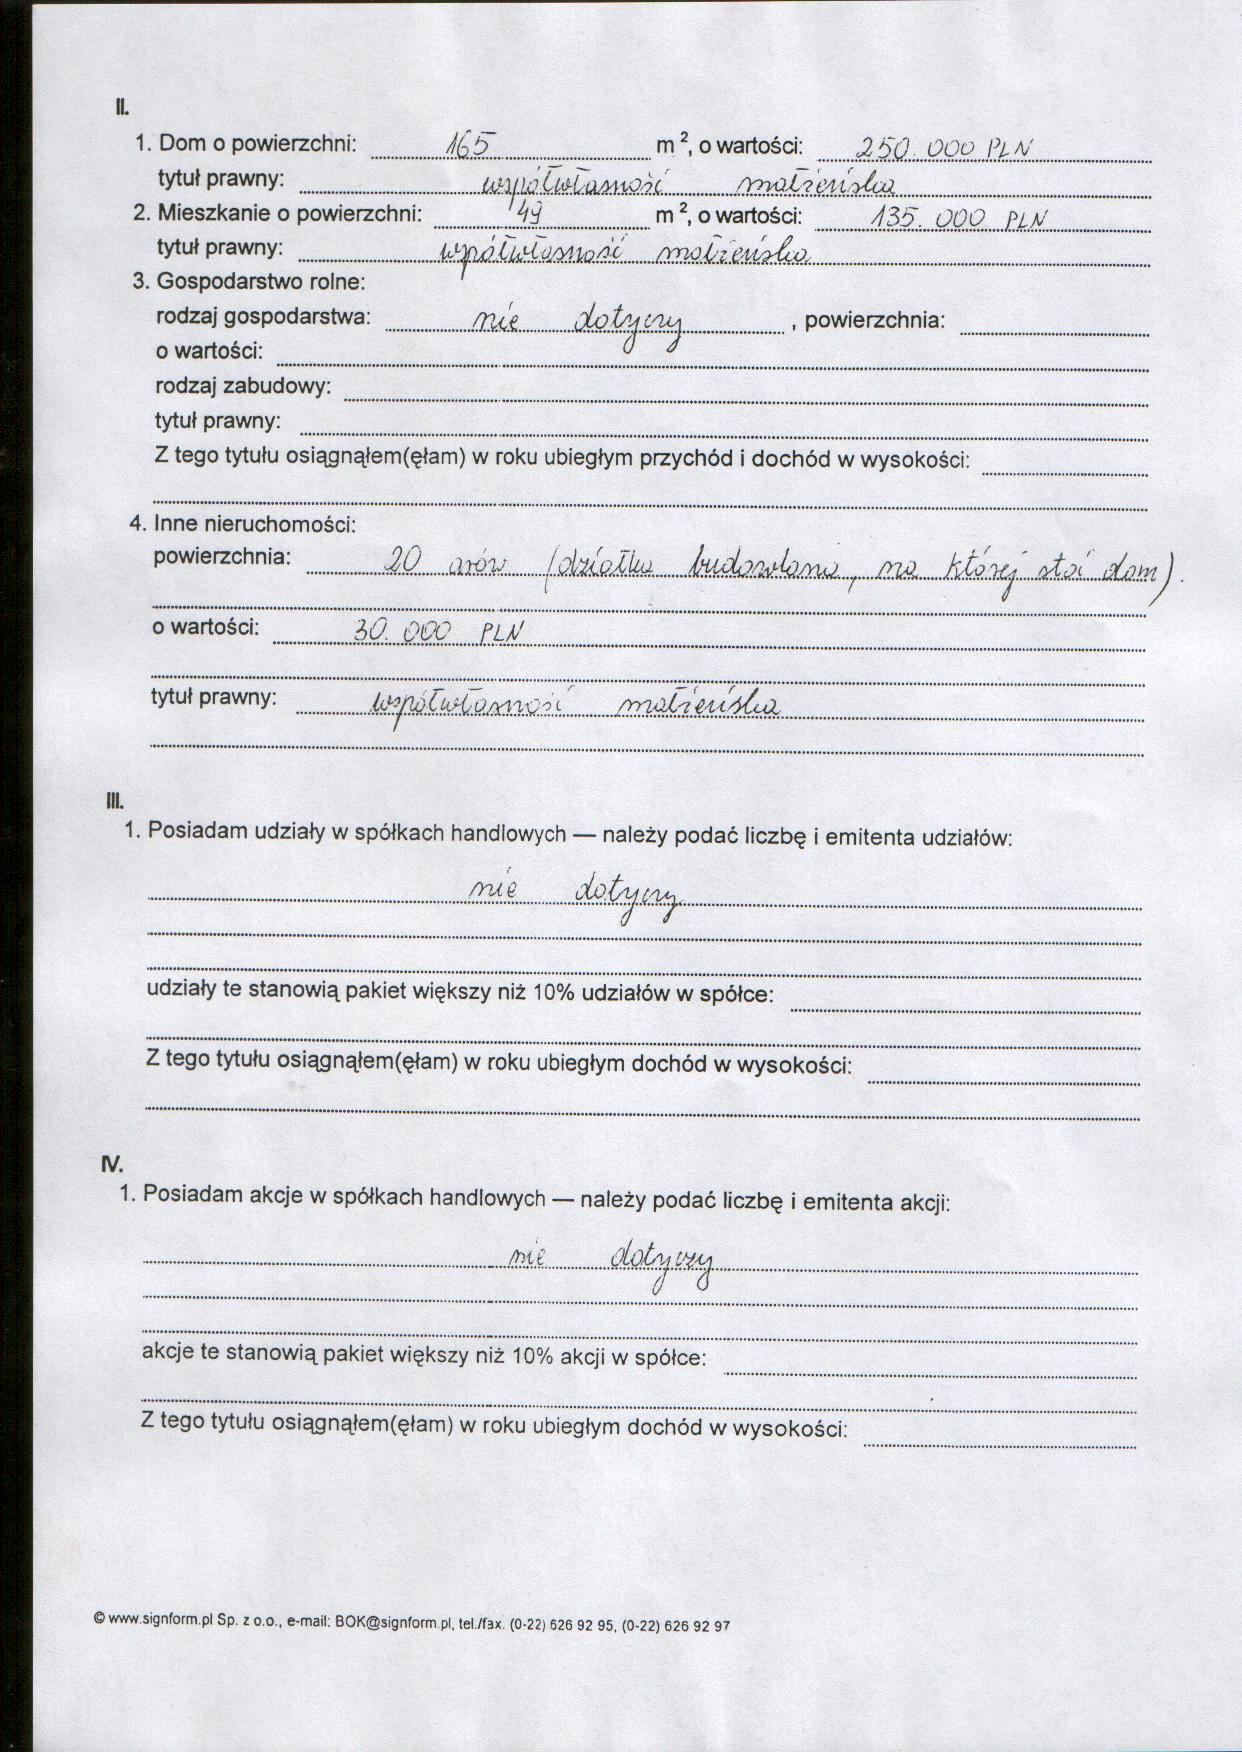 II.
1. Dom o powierzchni: 165 m², o wartości: 250.000 PLN
tytuł prawny: współwłasność małżeńska
2. Mieszkanie o powierzchni: 49 m², o wartości: 135.000 PLN
tytuł prawny: współwłasność małżeńska
3. Gospodarstwo rolne:
rodzaj gospodarstwa: nie dotyczy, powierzchnia:
o wartości:
rodzaj zabudowy:
tytuł prawny:
Z tego tytułu osiągnąłem(ęłam) w roku ubiegłym przychód i dochód w wysokości:
4. Inne nieruchomości:
powierzchnia: 20 arów (działka budowlana, na której stoi dom).
o wartości: 30.000 PLN
tytuł prawny: współwłasność małżeńska
III.
1. Posiadam udziały w spółkach handlowych — należy podać liczbę i emitenta udziałów:
nie dotyczy
udziały te stanowią pakiet większy niż 10% udziałów w spółce:
Z tego tytułu osiągnąłem(ęłam) w roku ubiegłym dochód w wysokości:
IV.
1. Posiadam akcje w spółkach handlowych — należy podać liczbę i emitenta akcji:
nie dotyczy
akcje te stanowią pakiet większy niż 10% akcji w spółce:
Z tego tytułu osiągnąłem(ęłam) w roku ubiegłym dochód w wysokości:
© www.signform.pl Sp. z o.o., e-mail: BOK@signform.pl, tel./fax. (0-22) 626 92 95, (0-22) 626 92 97